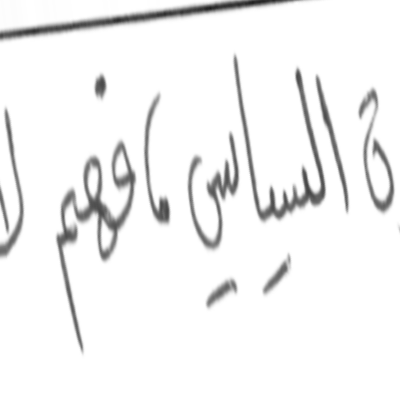 السياسي ما فهم